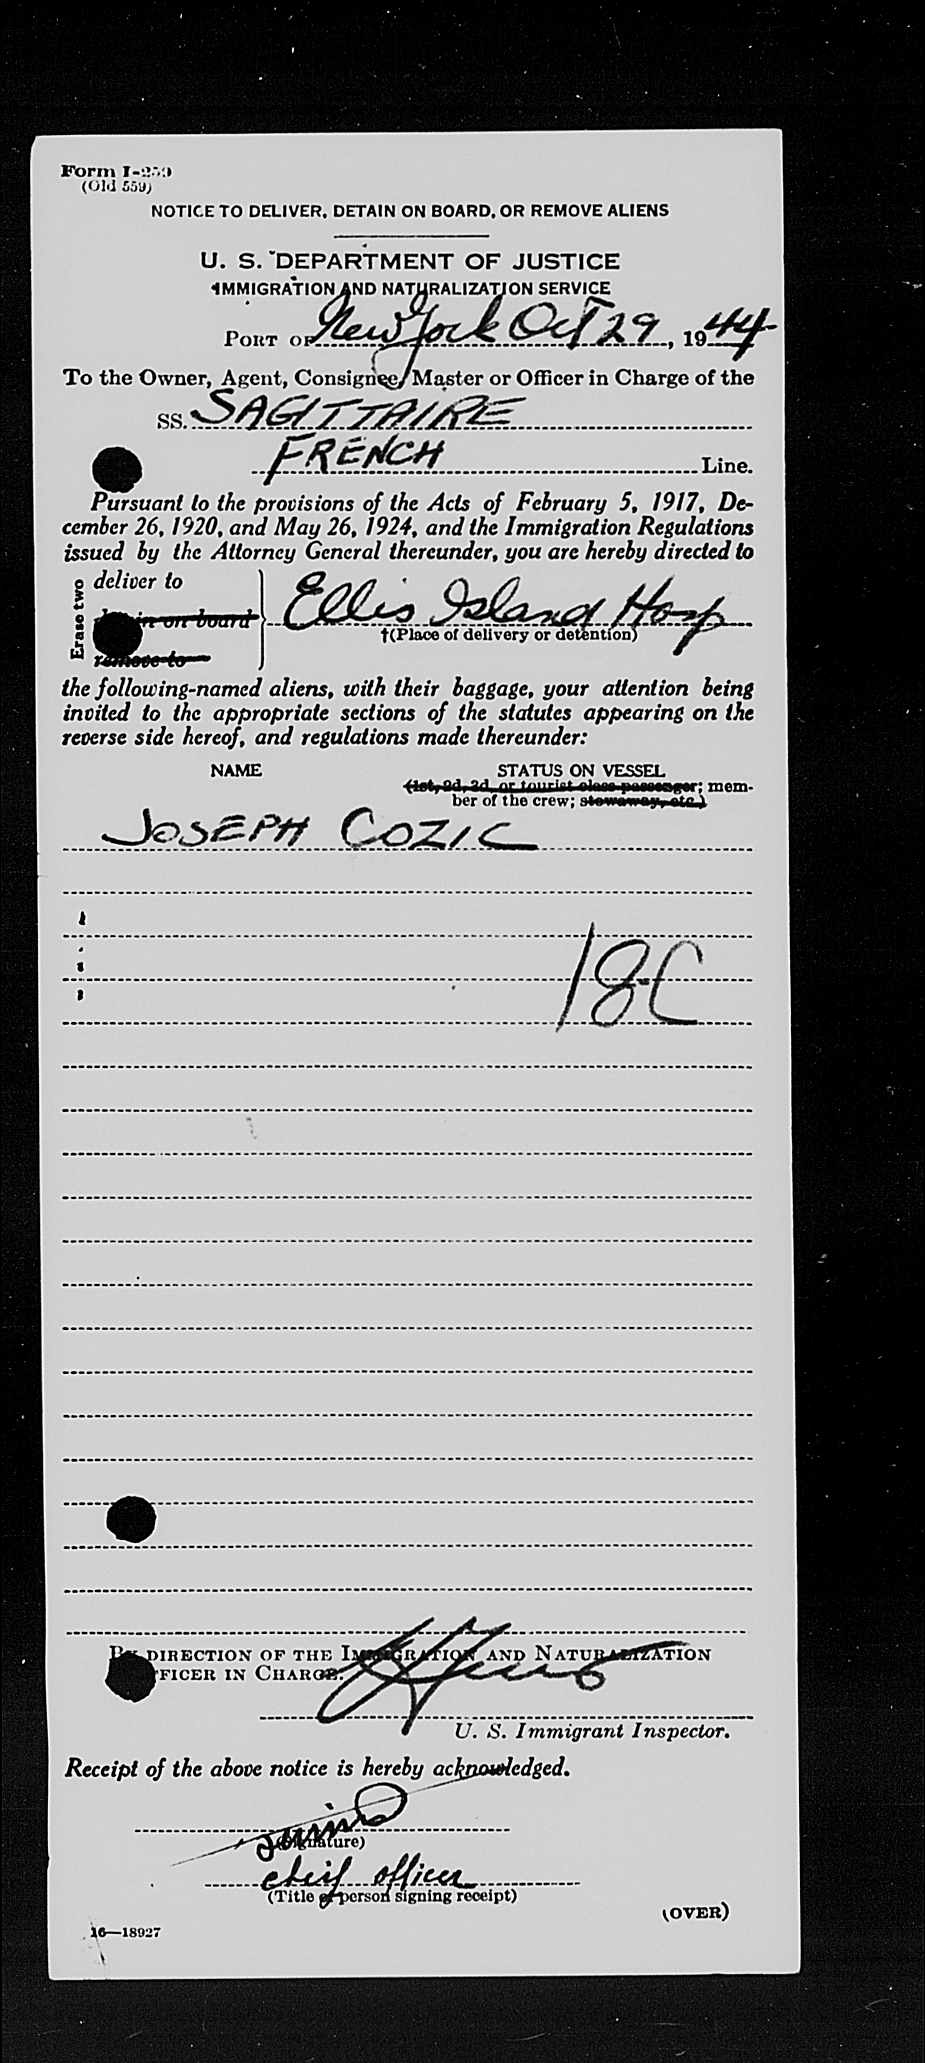 Form I-259
(Old 559)
NOTICE TO DELIVER, DETAIN ON BOARD, OR REMOVE ALIENS
U. S. DEPARTMENT OF JUSTICE
IMMIGRATION AND NATURALIZATION SERVICE
PORT OF New York Oct 29, 1944
To the Owner, Agent, Consignee, Master or Officer in Charge of the
SS. SAGITTAIRE
FRENCH Line.
Pursuant to the provisions of the Acts of February 5, 1917, De-
cember 26, 1920, and May 26, 1924, and the Immigration Regulations
issued by the Attorney General thereunder, you are hereby directed to
Erase two
deliver to
in on board
Ellis Island Hosp
†(Place of delivery or detention)
remove to
the following-named aliens, with their baggage, your attention being
invited to the appropriate sections of the statutes appearing on the
reverse side hereof, and regulations made thereunder:
NAME STATUS ON VESSEL
(1st, 2d, 3d, or tourist class passenger; mem-
ber of the crew; stowaway, etc.)
JOSEPH COZIC
18-C
BY DIRECTION OF THE IMMIGRATION AND NATURALIZATION
OFFICER IN CHARGE.
U. S. Immigrant Inspector.
Receipt of the above notice is hereby acknowledged.
(Signature)
cheif officer
(Title of person signing receipt)
(OVER)
16—18927